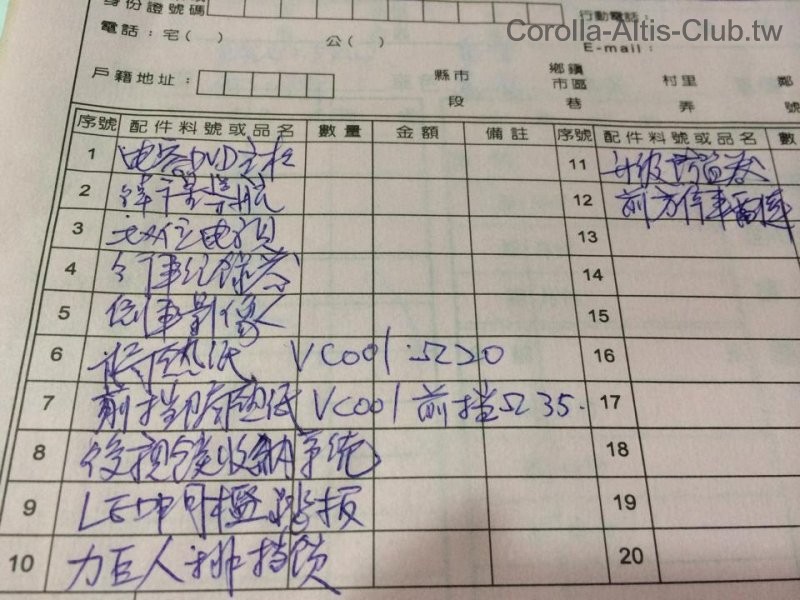 身份證號碼
行動電話:
Corolla-Altis-Club.tw
電話:宅( ) 公( )
E-mail:
戶籍地址: 縣市 鄉鎮市區 村里 鄰
段 巷 弄 號
序號 配件料號或品名 數量 金額 備註 序號 配件料號或品名 數
1 DVD主機
2 衛星導航
3 數位電視
4 行車紀錄器
5 倒車影像
6 隔熱紙 VCool Ω20
7 前擋隔熱紙 VCool 前擋Ω35.
8 後視鏡收納系統
9 LED門檻踏板
10 力巨人排擋鎖
11 升級
12 前方停車雷達
13
14
15
16
17
18
19
20